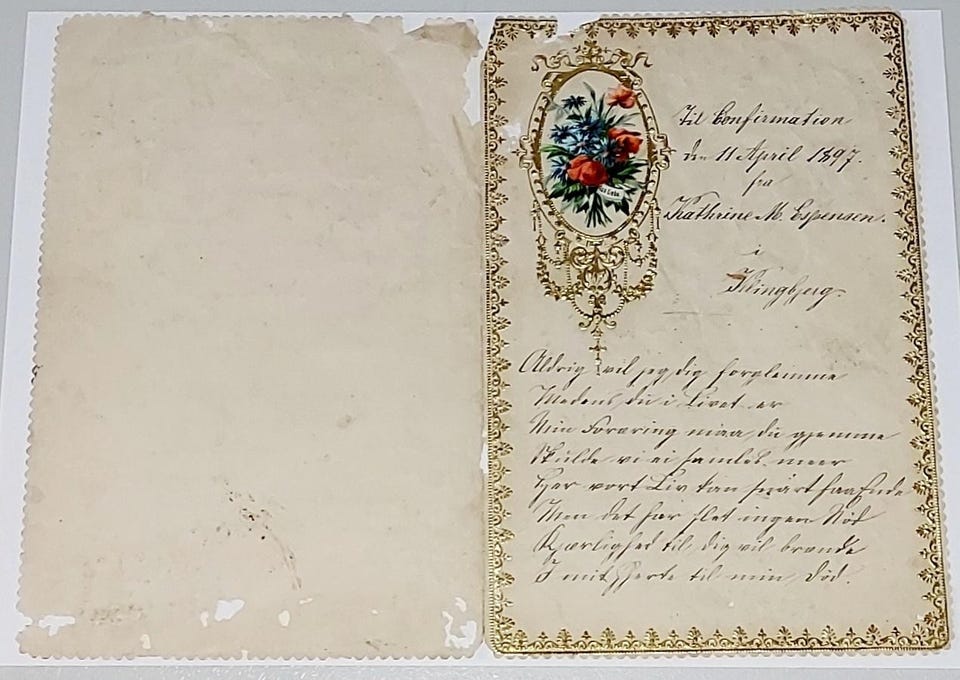 Til Confirmation
den 11 April 1897.
fra
Kathrine M. Espensen.
i
Klingbjerg.
Aldrig vil jeg dig forglemme
Medens du i Livet er
Min Foræring maa du gjemme
Skulde vi ei samles meer
Her vort Liv kan snart faa Ende
Men det har slet ingen Nöd
Kjærlighed til dig vil brænde
I mit Hjerte til min Död.